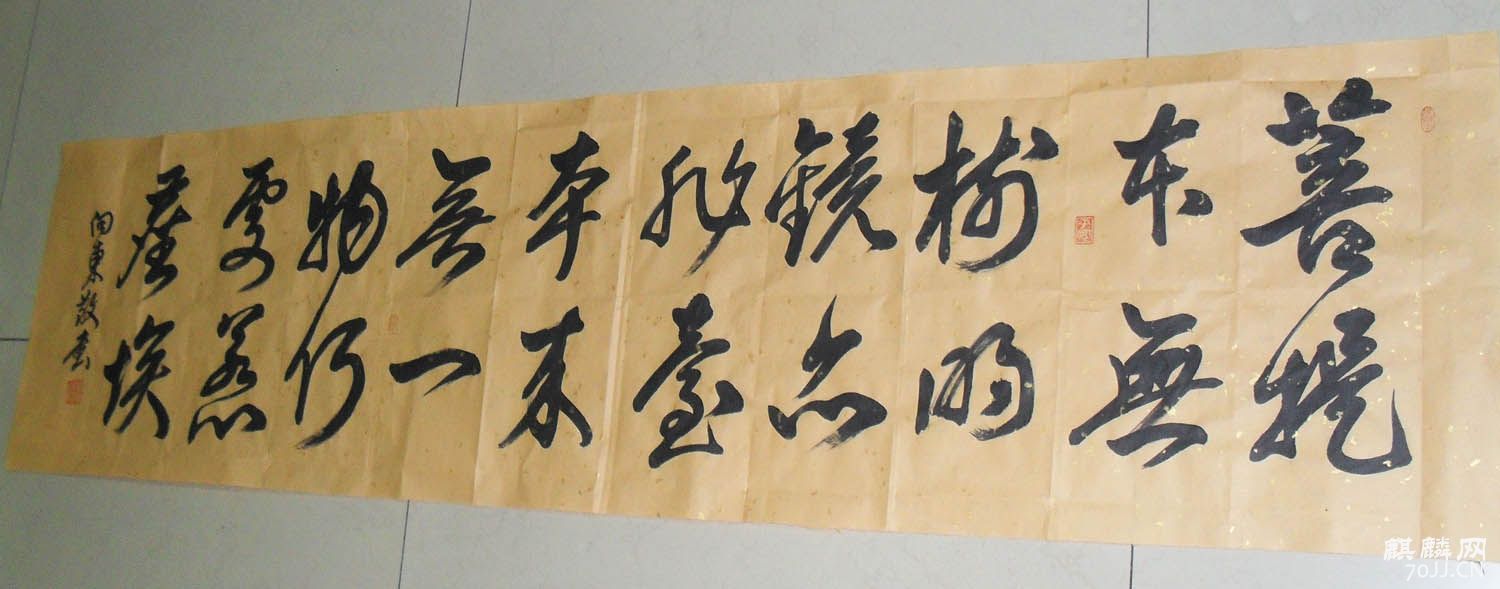 菩提
本無
樹明
鏡亦
非臺
本來
無一
物何
處惹
塵埃
向東敬書
麒麟网
70JJ.CN